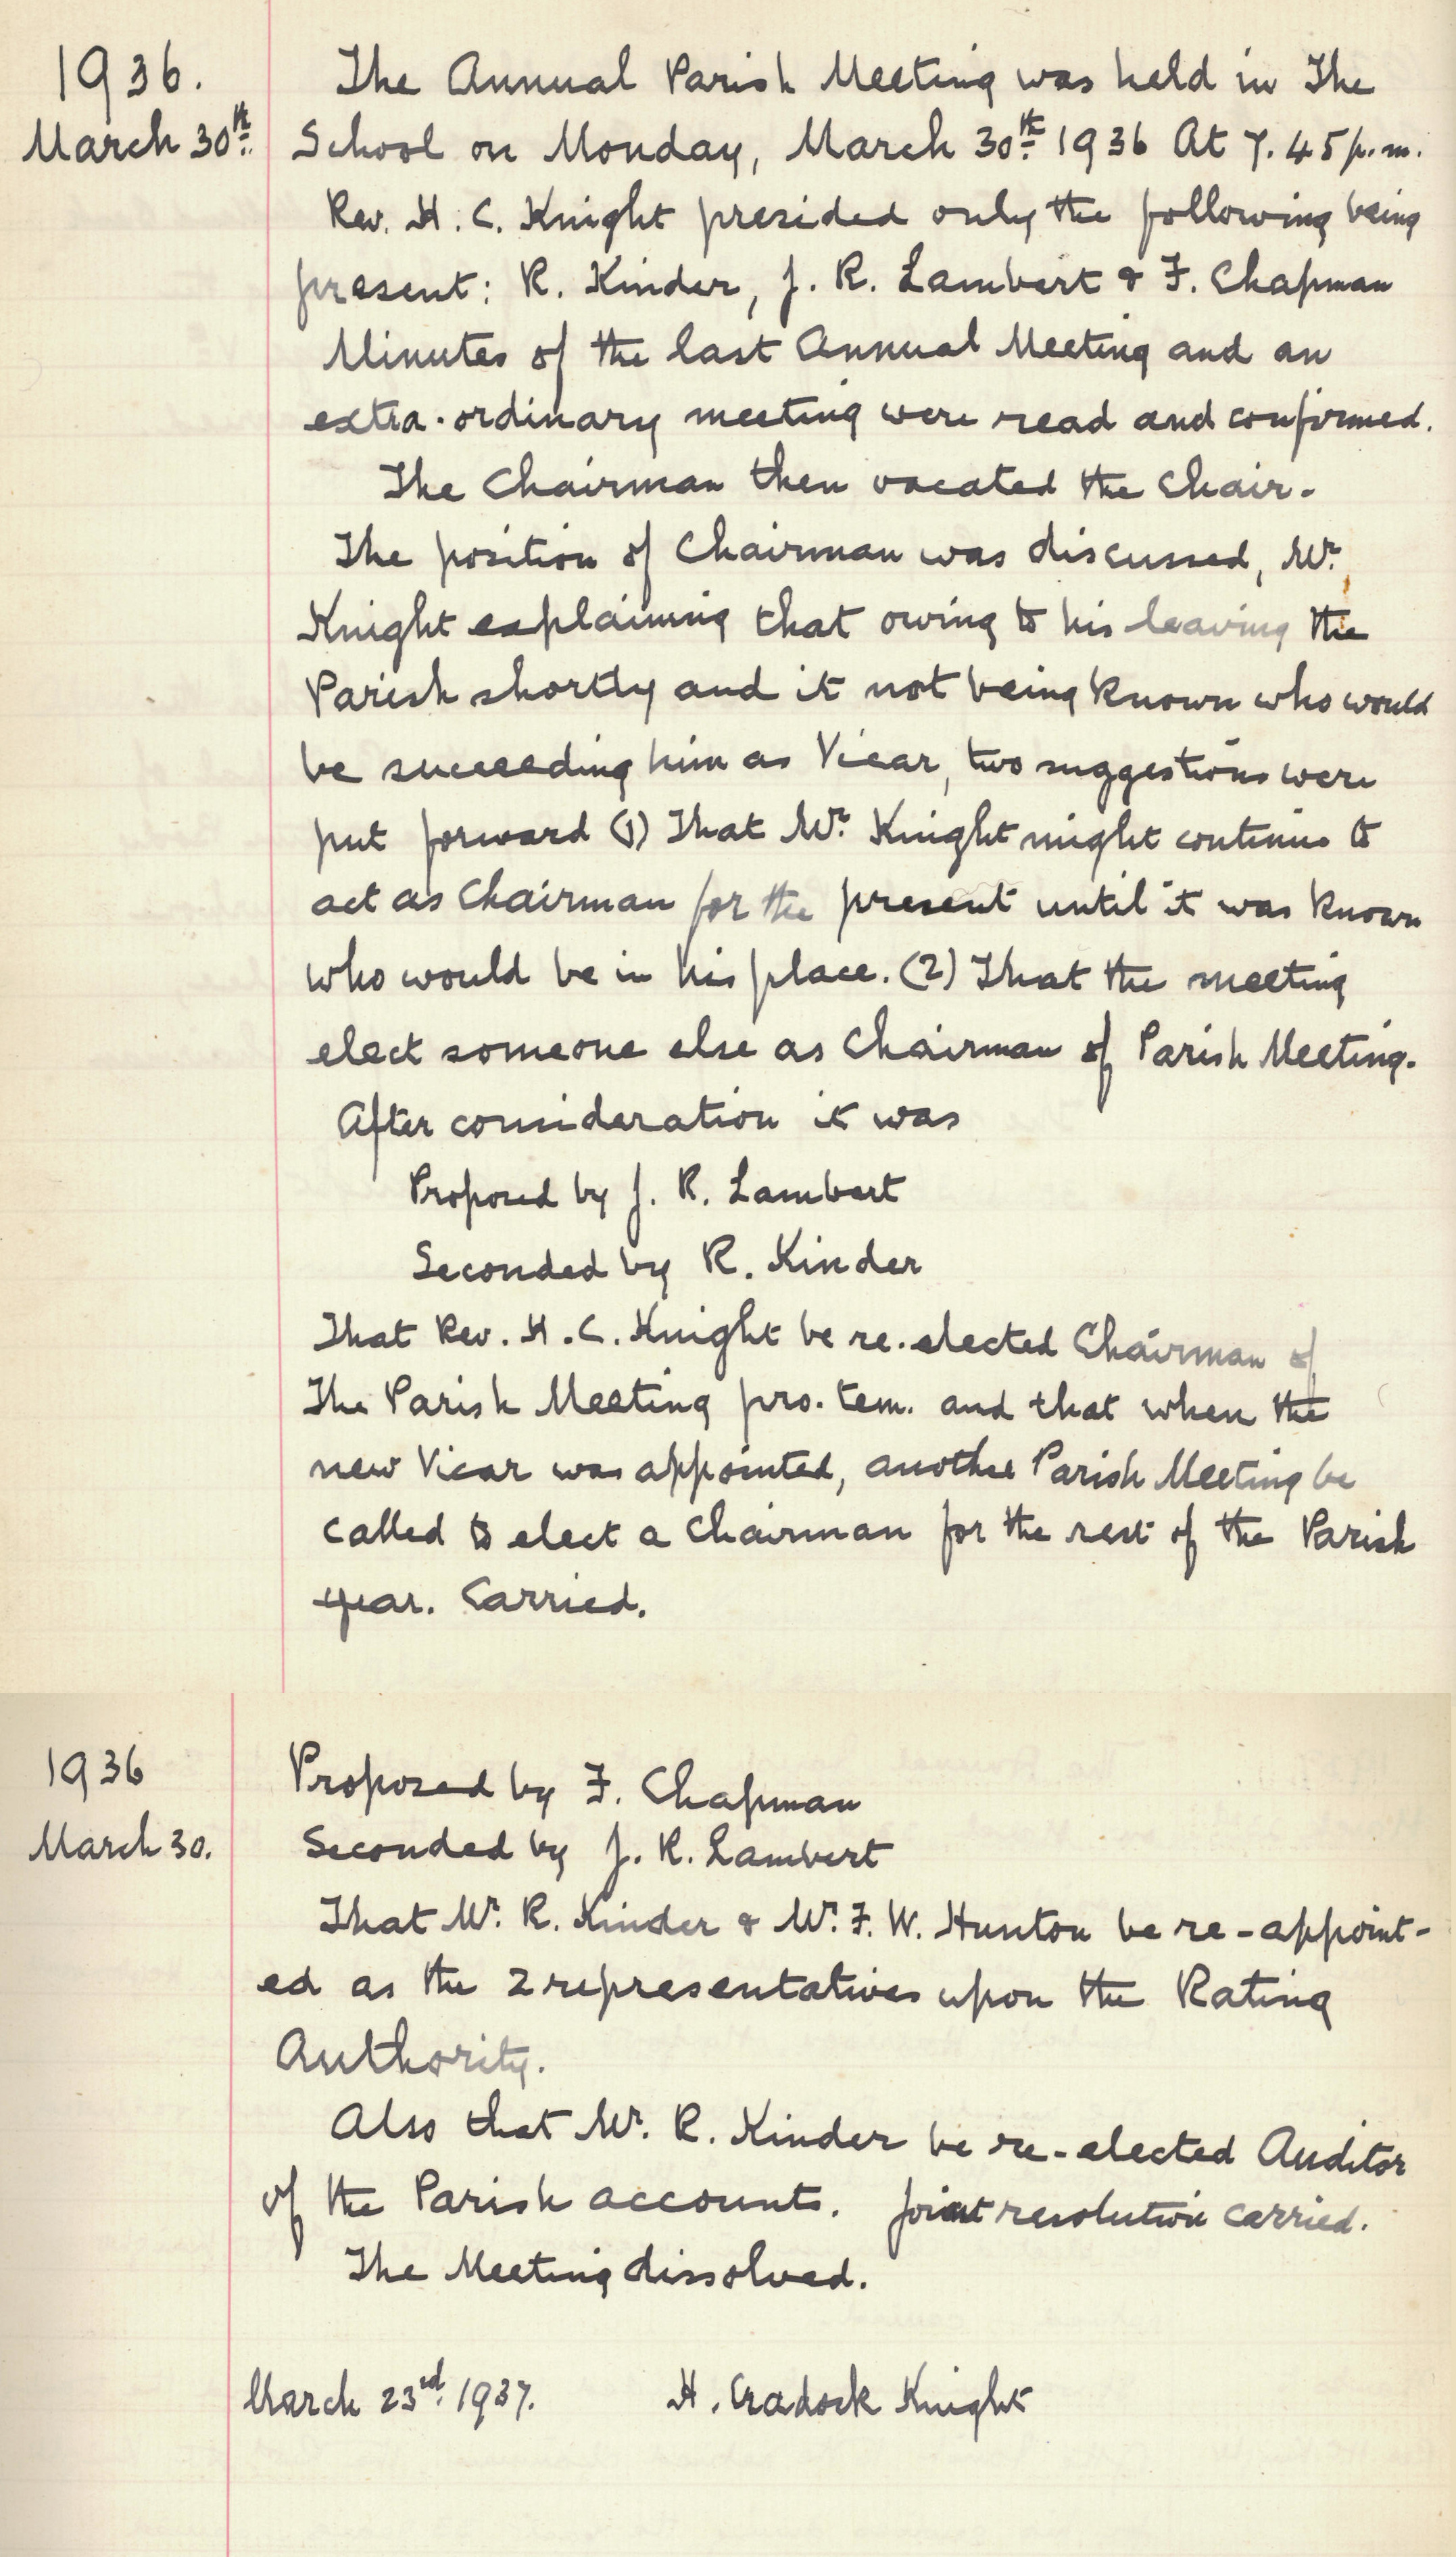 1936.
March 30th.
The Annual Parish Meeting was held in The
School on Monday, March 30th. 1936 At 7.45 p.m.
Rev. H. C. Knight presided only the following being
present: R. Kinder, J. R. Lambert & F. Chapman
Minutes of the last Annual Meeting and an
extra-ordinary meeting were read and confirmed.
The Chairman then vacated the Chair.
The position of Chairman was discussed, Mr.
Knight explaining that owing to his leaving the
Parish shortly and it not being known who would
be succeeding him as Vicar, two suggestions were
put forward (1) That Mr. Knight might continue to
act as Chairman for the present until it was known
who would be in his place. (2) That the meeting
elect someone else as Chairman of Parish Meeting.
After consideration it was
Proposed by J. R. Lambert
Seconded by R. Kinder
That Rev. H. C. Knight be re-elected Chairman of
The Parish Meeting pro. tem. and that when the
new Vicar was appointed, another Parish Meeting be
called to elect a Chairman for the rest of the Parish
year. Carried.
1936
March 30.
Proposed by F. Chapman
Seconded by J. R. Lambert
That Mr. R. Kinder & Mr. F. W. Hunton be re-appoint-
ed as the 2 representatives upon the Rating
Authority.
Also that Mr. R. Kinder be re-elected Auditor
of the Parish accounts. Joint resolution carried.
The Meeting dissolved.
March 23rd. 1937. H. Cradock Knight